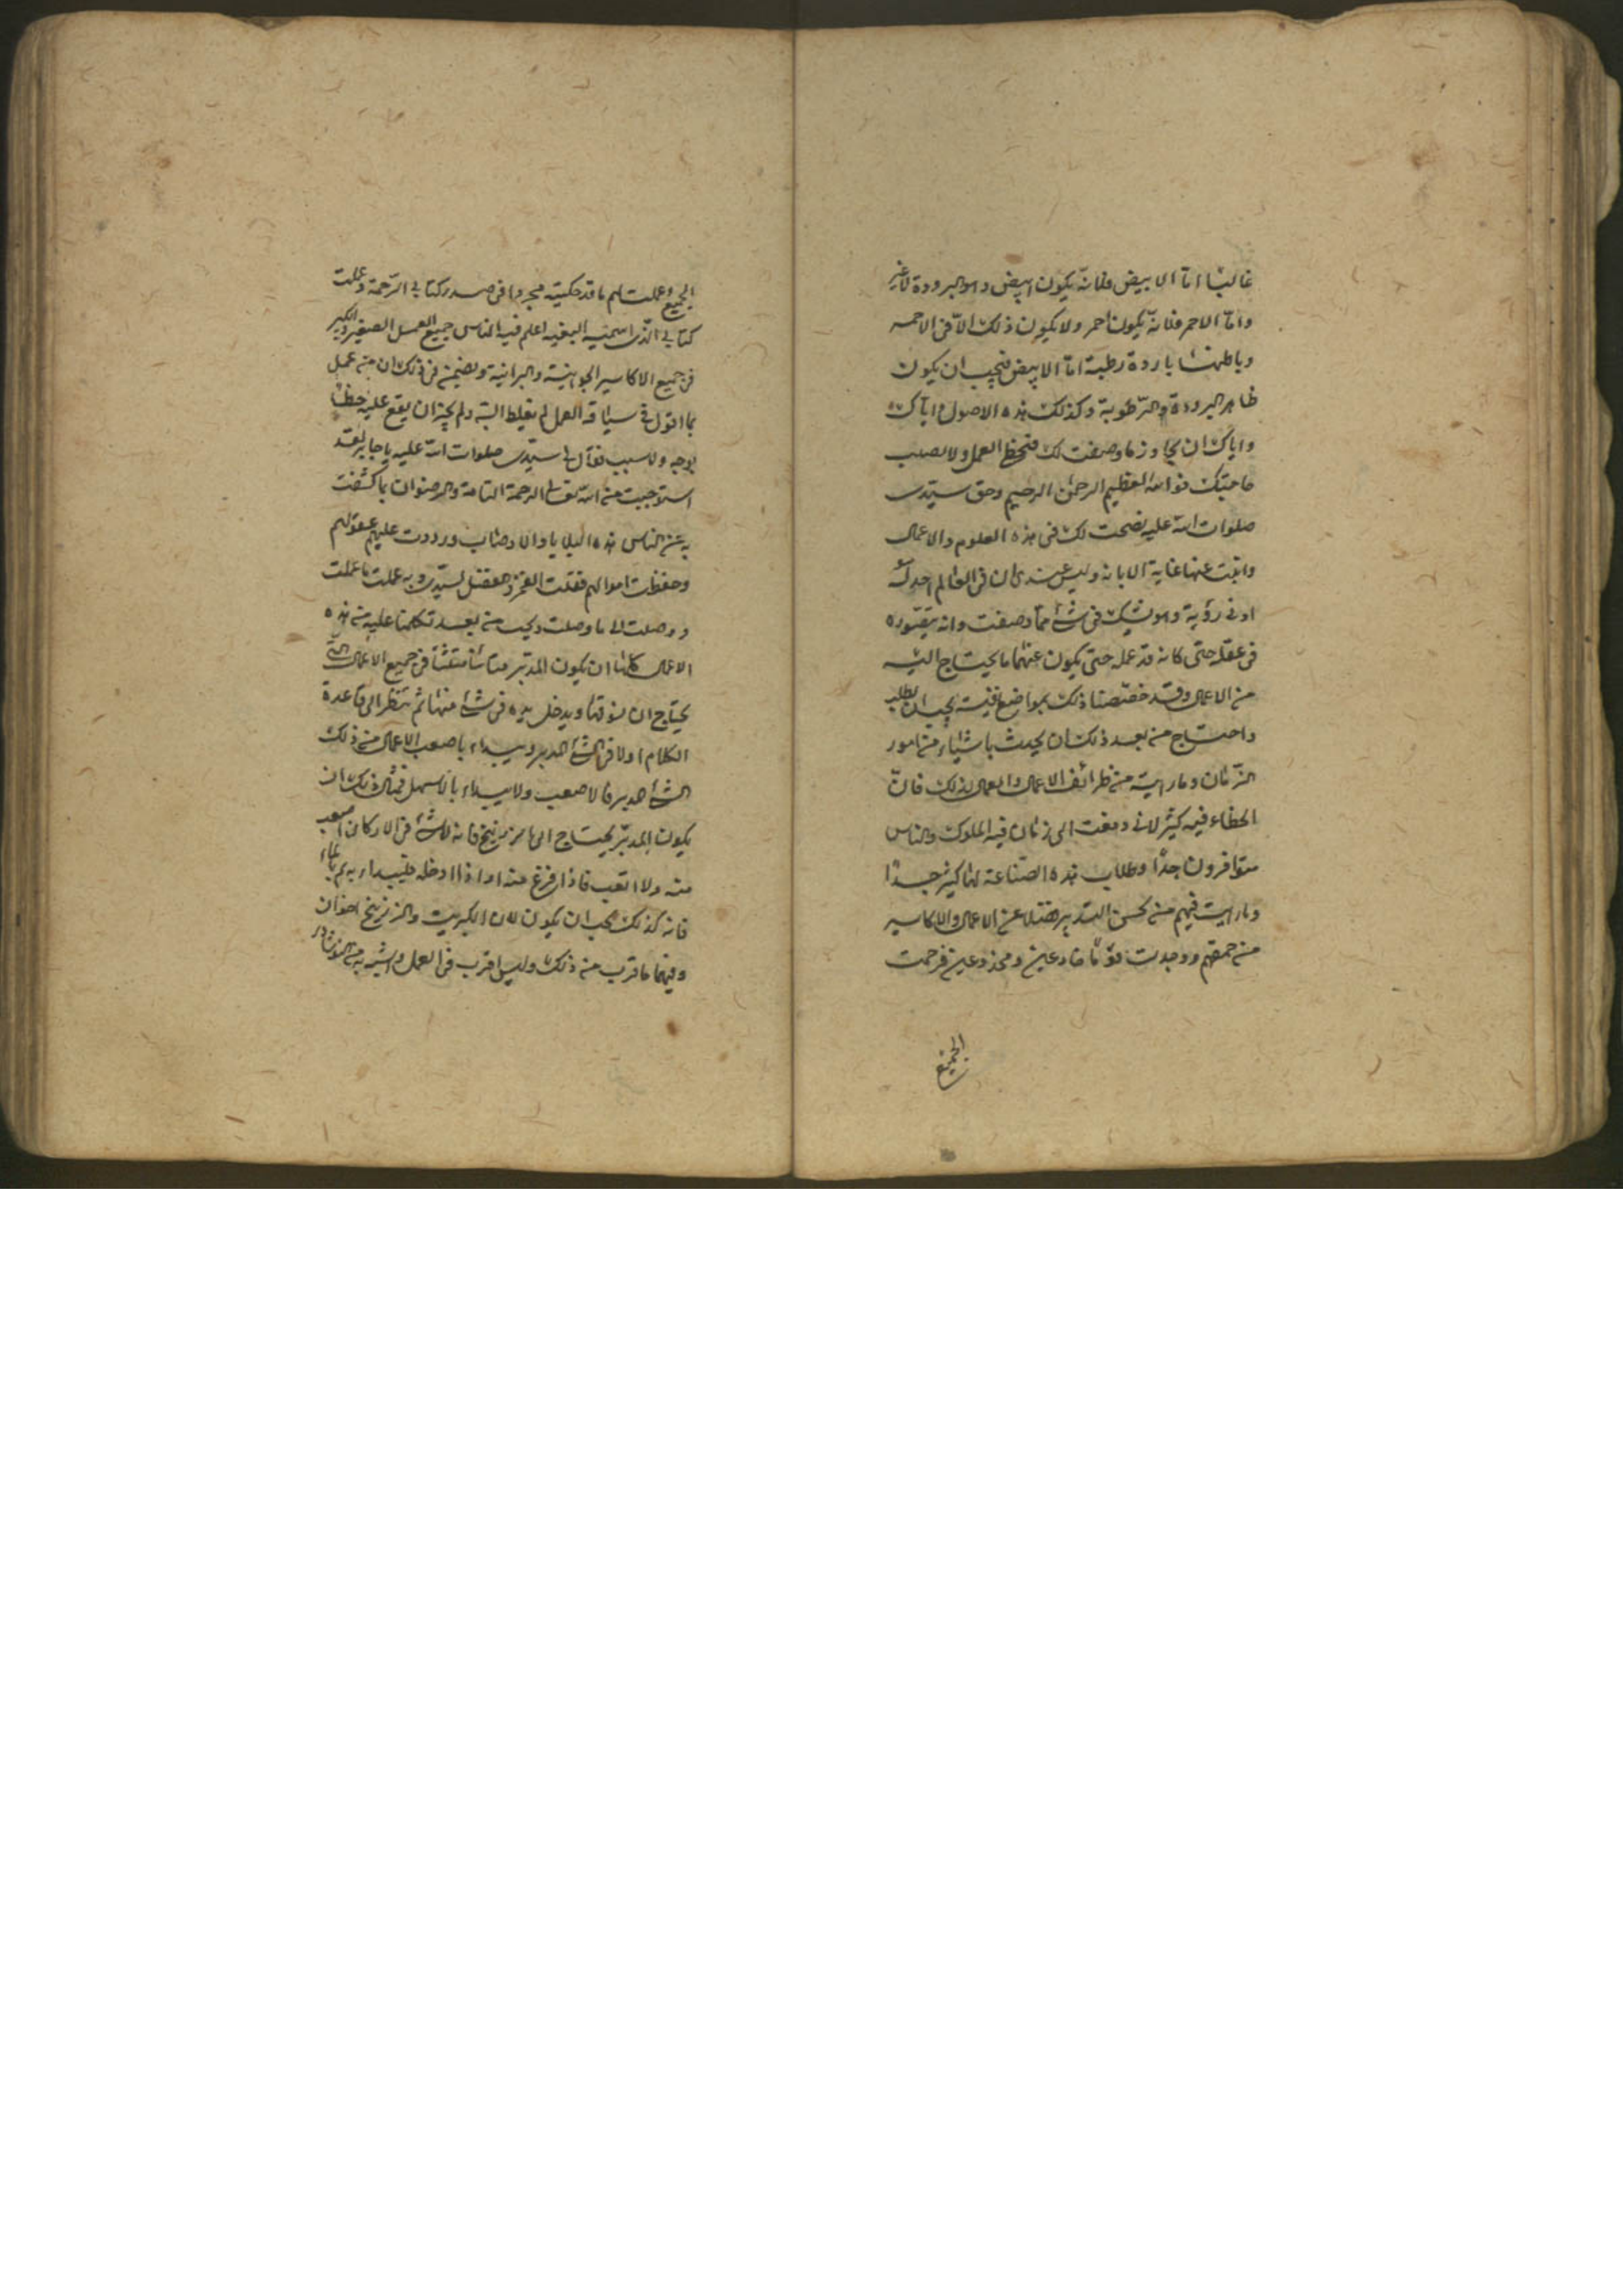 غالبا امّا الابيض فلانّه يكون ابيض وهو البرودة لا غير
وامّا الاحمر فلانّه يكون احمر ولا يكون ذلك الّا في الاحمر
وباطنها باردة رطبة امّا الابيض فيجب ان يكون
ظاهر البرودة والرّطوبة وكذلك هذه الاصول
واياك ان تجاوز ما وصفت لك فتخطئ العمل ولا تصيب
حاجتك فو الله العظيم الرحمن الرحيم وحق سيّدي
صلوات الله عليه نصحت لك في هذه العلوم والاعمال
وابنت عنها غاية الابانة وليس عندي ان في العالم احد له
ادنى رؤية وهو يشك في شئ ممّا وصفت وانه يتصوّره
في عقله حتى كانه قد عمله حتى يكون عنها ما يحتاج اليه
من الاعمال وقد خصّصنا ذلك بمواضع فيه يجب ان يطلب
واحتاج من بعد ذلك ان يحدث باشياء من امور
الزّمان وما رايت من طرائف الاعمال والعمال لذلك فانّ
الخطاء فيه كثير لاني دفعت الى زمان فيه الملوك والناس
متوافرون جدّا وطلاب هذه الصّناعة لها كثير جدّا
وما رايت فيهم من يحسن التدبير فضلا عن الاعمال والاكاسير
من حمقهم ووجدت قوما خادعين ومخدوعين فرحمت
الجميع
الجميع وعملت لهم ما قد حكيته مجردا في صدر كتابي الرّحمة وعملت
كتابي الّذي اسميه البغية اعلم فيه الناس جميع العمل الصغير والكبير
في جميع الاكاسير الجوانية والبرانية وضمن في ذلك ان من عمل
بما اقول في سياقة العمل لم يغلط البتّه ولم يجز ان يقع عليه خطا
بوجه ولا سبب فقال لي سيّدي صلوات الله عليه يا جابر لقد
استوجبت من الله تعالى الرحمة التامة والرضوان بما كشفت
به عن الناس هذه البلايا والاوصاب ورددت عليهم عقولهم
وحفظت اموالهم فقلت الفخر والفضل لسيّدي وبه عملت ما عملت
ووصلت الى ما وصلت ويجب من بعد تكلمنا عليه من هذه
الاعمال كلها ان يكون المدبّر متانّيا متثبّتا في جميع الاعمال التي
يحتاج ان يسوقها ويدخل يده في شئ منها ثم ينظر الى قاعدة
الكلام اولا في الشئ المدبر ويبداء باصعب الاعمال من ذلك
الشئ المدبر فالاصعب ولا يبداء بالاسهل فمثال ذلك ان
يكون المدبّر يحتاج الى ماء زرنيخ فانه لا شئ في الاركان اصعب
منه ولا اتعب فاذا فرغ منه او اذا ادخله فليبداء به ثم بماء
فانه كذلك يجب ان يكون لان الكبريت والزرنيخ اخوان
وفيهما ما قرب من ذلك وليس اقرب في العمل واشبه به من النوشادر